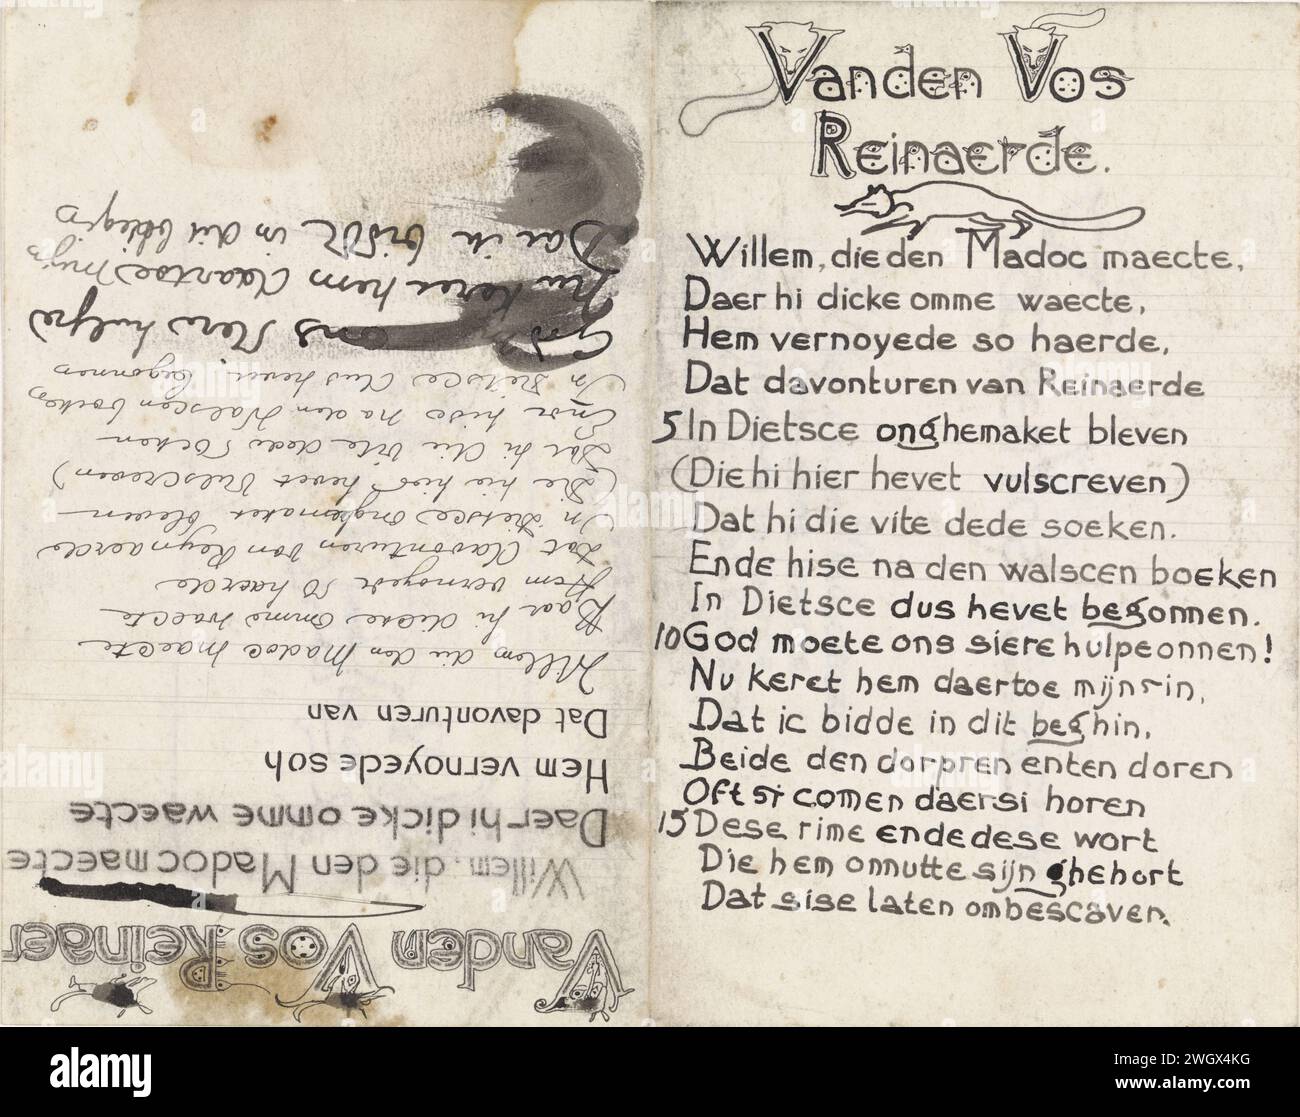 Vanden Vos
Reinaerde.
Willem, die den Madoc maecte,
Daer hi dicke omme waecte,
Hem vernoyede so haerde,
Dat davonturen van Reinaerde
5 In Dietsce onghemaket bleven
(Die hi hier hevet vulscreven)
Dat hi die vite dede soeken.
Ende hise na den walscen boeken
In Dietsce dus hevet begonnen.
10 God moete ons siere hulpe onnen!
Nu keret hem daertoe mijn sin,
Dat ic bidde in dit beghin,
Beide den dorpren enten doren
Oft si comen daer si horen
15 Dese rime ende dese wort
Die hem onnutte sijn ghehort
Dat sise laten ombescaven.
Vanden Vos Reinaer
Willem, die den Madoc maecte
Daer hi dicke omme waecte
Hem vernoyede soh
Dat davonturen van
Willem, die den Madoc maecte
Daar hi dicke omme waecte
Hem vernoyede so haerde
Dat davonturen van Reynaerde
In Dietsce onghemaket bleven
(Die hie hier hevet vulscreven)
Dat hi die vite dede soeken
Ende hise na den Walscen boeken
In Dietsce dus hevet begonnen
God ons siere hulpe
Nu keret hem daartoe mijn
Dat ik bidde in dit
alamy
Image ID: 2WGX4KG
www.alamy.com